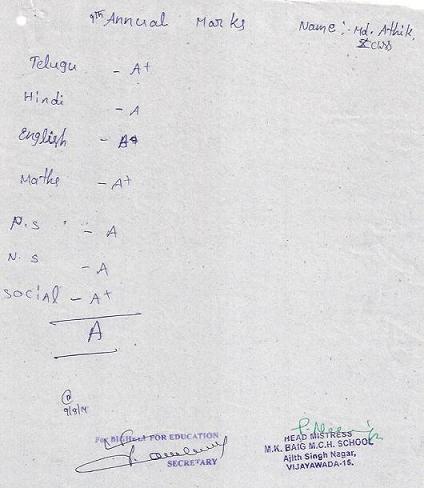 9th Annual Marks
Name :- Md. Athik
X class
Telugu - A+
Hindi - A
English - A+
Maths - A+
P.S - A
N.S - A
Social - A+
A
FOR EDUCATION
SECRETARY
HEAD MISTRESS
M.K. BAIG M.C.H. SCHOOL
Ajith Singh Nagar,
VIJAYAWADA-15.